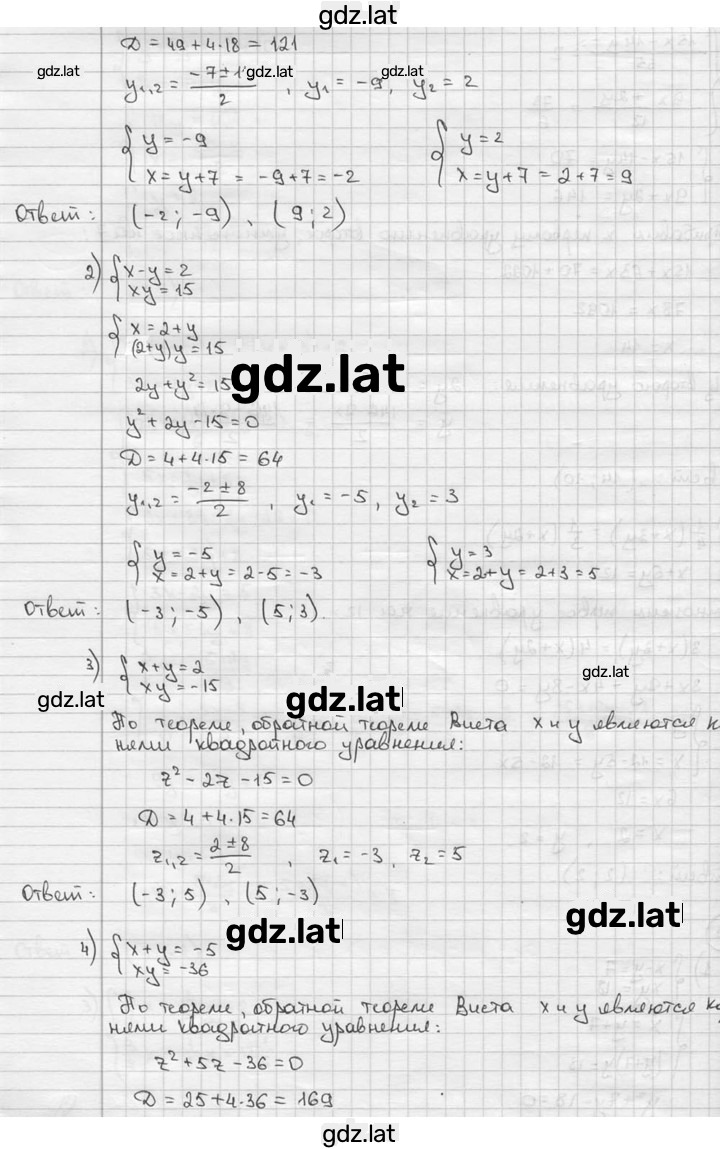 gdz.lat
D = 49 + 4·18 = 121
gdz.lat gdz.lat gdz.lat
y₁,₂ = (-7 ± 1)/2 , y₁ = -9, y₂ = 2
{ y = -9 { y = 2
x = y+7 = -9+7 = -2 x = y+7 = 2+7 = 9
Ответ: (-2; -9), (9; 2)
2) { x-y = 2
xy = 15
{ x = 2+y
(2+y)y = 15
2y + y² = 15
gdz.lat
y² + 2y - 15 = 0
D = 4 + 4·15 = 64
y₁,₂ = (-2 ± 8)/2 , y₁ = -5, y₂ = 3
{ y = -5 { y = 3
x = 2+y = 2-5 = -3 x = 2+y = 2+3 = 5
Ответ: (-3; -5), (5; 3).
3) { x+y = 2
xy = -15
gdz.lat
gdz.lat gdz.lat
По теореме, обратной теореме Виета x и y являются к
нями квадратного уравнения:
z² - 2z - 15 = 0
D = 4 + 4·15 = 64
z₁,₂ = (2 ± 8)/2 , z₁ = -3, z₂ = 5
Ответ: (-3; 5), (5; -3)
gdz.lat gdz.lat
4) { x+y = -5
xy = -36
По теореме, обратной теореме Виета x и y являются ко
нями квадратного уравнения:
z² + 5z - 36 = 0
D = 25 + 4·36 = 169
gdz.lat